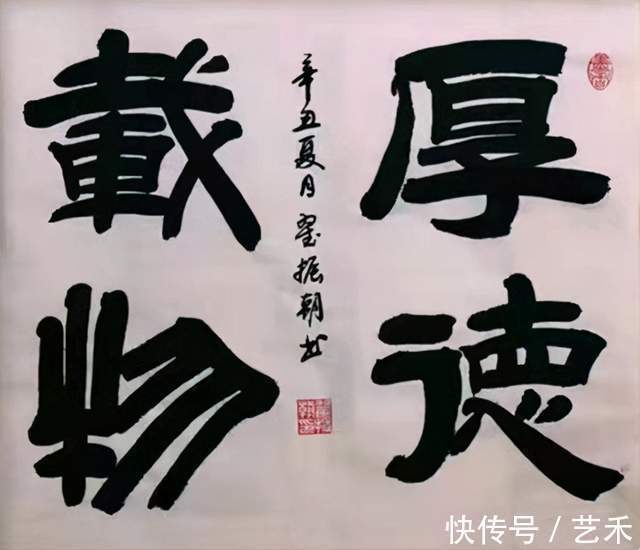 厚德
載物
辛丑夏月翟振朝书
快传号 / 艺禾